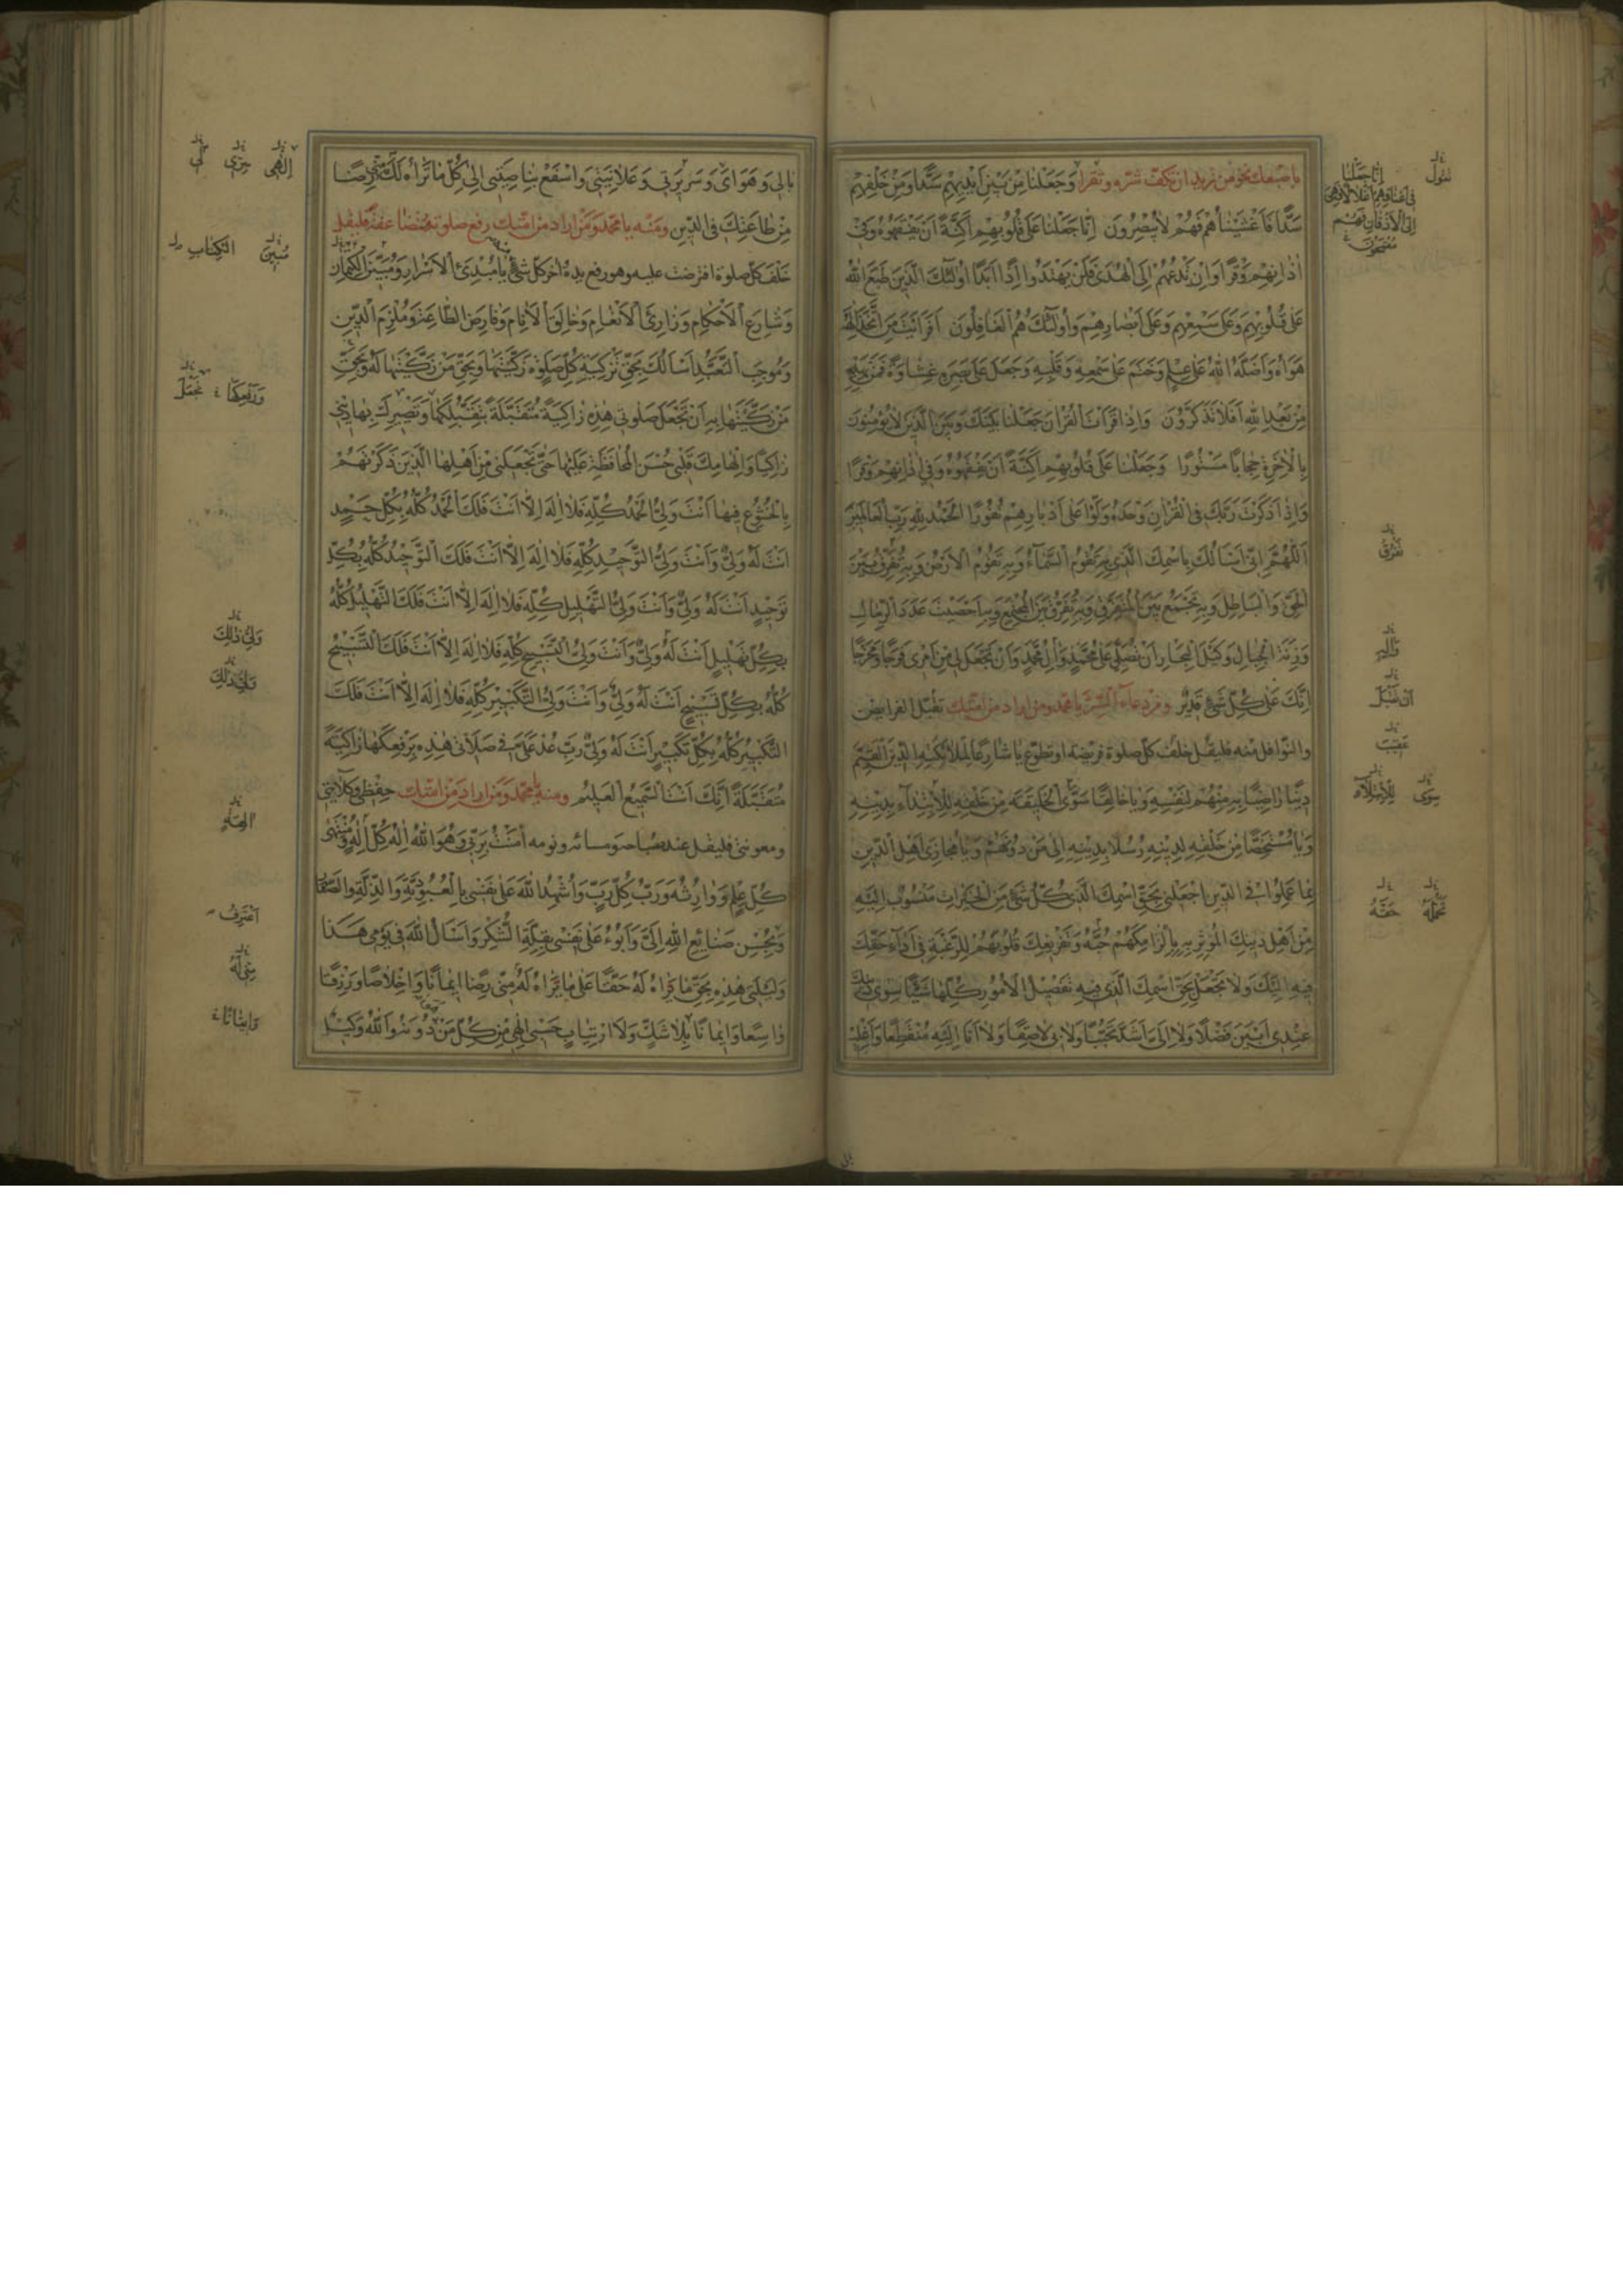 باصبعك نحو من تريد ان تكف شره وتقرا وَجَعَلْنَا مِنْ بَيْنِ اَيْدِيهِمْ سَدًّا وَمِنْ خَلْفِهِمْ
سَدًّا فَاَغْشَيْنَاهُمْ فَهُمْ لَا يُبْصِرُونَ اِنَّا جَعَلْنَا عَلَى قُلُوبِهِمْ اَكِنَّةً اَنْ يَفْقَهُوهُ وَفِي
اٰذَانِهِمْ وَقْرًا وَاِنْ تَدْعُهُمْ اِلَى الْهُدَى فَلَنْ يَهْتَدُوا اِذًا اَبَدًا اُولٰئِكَ الَّذِينَ طَبَعَ اللهُ
عَلَى قُلُوبِهِمْ وَعَلَى سَمْعِهِمْ وَعَلَى اَبْصَارِهِمْ وَاُولٰئِكَ هُمُ الْغَافِلُونَ اَفَرَاَيْتَ مَنِ اتَّخَذَ اِلٰهَهُ
هَوَاهُ وَاَضَلَّهُ اللهُ عَلَى عِلْمٍ وَخَتَمَ عَلَى سَمْعِهِ وَقَلْبِهِ وَجَعَلَ عَلَى بَصَرِهِ غِشَاوَةً فَمَنْ يَهْدِيهِ
مِنْ بَعْدِ اللهِ اَفَلَا تَذَكَّرُونَ وَاِذَا قَرَاْتَ الْقُرْاٰنَ جَعَلْنَا بَيْنَكَ وَبَيْنَ الَّذِينَ لَا يُؤْمِنُونَ
بِالْاٰخِرَةِ حِجَابًا مَسْتُورًا وَجَعَلْنَا عَلَى قُلُوبِهِمْ اَكِنَّةً اَنْ يَفْقَهُوهُ وَفِي اٰذَانِهِمْ وَقْرًا
وَاِذَا ذَكَرْتَ رَبَّكَ فِي الْقُرْاٰنِ وَحْدَهُ وَلَّوْا عَلَى اَدْبَارِهِمْ نُفُورًا اَلْحَمْدُ لِلّٰهِ رَبِّ الْعَالَمِينَ
اَللّٰهُمَّ اِنِّي اَسْاَلُكَ بِاسْمِكَ الَّذِي بِهِ تَقُومُ السَّمَاءُ وَبِهِ تَقُومُ الْاَرْضُ وَبِهِ تُفَرِّقُ بَيْنَ
الْحَقِّ وَالْبَاطِلِ وَبِهِ تَجْمَعُ بَيْنَ الْمُتَفَرِّقِ وَبِهِ تُفَرِّقُ بَيْنَ الْمُجْتَمِعِ وَبِهِ اَحْصَيْتَ عَدَدَ الرِّمَالِ
وَزِنَةَ الْجِبَالِ وَكَيْلَ الْبِحَارِ اَنْ تُصَلِّيَ عَلَى مُحَمَّدٍ وَاٰلِ مُحَمَّدٍ وَاَنْ تَجْعَلَ لِي مِنْ اَمْرِي فَرَجًا وَمَخْرَجًا
اِنَّكَ عَلَى كُلِّ شَيْءٍ قَدِيرٌ ومن دعاء السر يا محمد ومن اراد من امتك تقبل الفرايض
والنوافل منه فليقل خلف كل صلوة فريضة او تطوع يَا شَارِعًا لِمَلَائِكَتِهِ الدِّينَ الْقَيِّمَ
دِينًا رَاضِيًا بِهِ مِنْهُمْ لِنَفْسِهِ وَيَا خَالِقًا سِوَى الْخَلِيقَةِ مِنْ خَلْقِهِ لِلْاِبْتِدَاءِ بِدِينِهِ
وَيَا مُسْتَخِصًّا مِنْ خَلْقِهِ لِدِينِهِ رُسُلًا بِدِينِهِ اِلَى مَنْ دُونَهُمْ وَيَا مُجَازِيَ اَهْلِ الدِّينِ
بِمَا عَمِلُوا فِي الدِّينِ اجْعَلْنِي بِحَقِّ اسْمِكَ الَّذِي كُلُّ شَيْءٍ مِنَ الْخَيْرَاتِ مَنْسُوبٌ اِلَيْهِ
مِنْ اَهْلِ دِينِكَ الْمُؤْثِرِ بِهِ بِاِلْزَامِكَهُمْ حُبَّهُ وَتَفْرِيغِكَ قُلُوبَهُمْ لِلرَّغْبَةِ فِي اَدَاءِ حَقِّكَ
فِيهِ اِلَيْكَ وَلَا تَجْعَلْ بِحَقِّ اسْمِكَ الَّذِي فِيهِ تَفْصِيلُ الْاُمُورِ كُلِّهَا شَيْئًا سِوَى دِينِكَ
عِنْدِي اَبْيَنَ فَضْلًا وَلَا اِلَيَّ اَشَدَّ تَحَبُّبًا وَلَا بِي لَاصِقًا وَلَا اَنَا اِلَيْهِ مُنْقَطِعًا وَاغْلِبْ
نتول
اِنَّا جَعَلْنَا
فِي اَعْنَاقِهِمْ اَغْلَالًا فَهِيَ
اِلَى الْاَذْقَانِ فَهُمْ
مُقْمَحُونَ
تفرق
وَاٰلِهِ
سِوَى
حَقَّهُ
بَالِي وَهَوَايَ وَسَرِيرَتِي وَعَلَانِيَتِي وَاسْفَعْ بِنَاصِيَتِي اِلَى كُلِّ مَا تَرَاهُ لَكَ مِنِّي رِضًا
مِنْ طَاعَتِكَ فِي الدِّينِ ومنه يا محمد ومن اراد من امتك رفع صلوته مضاعفة فليقل
خلف كل صلوة افترضت عليه وهو رفع يده اخر كل شيء يَا مُبْدِئَ الْاَسْرَارِ وَمُبَيِّنَ الْكِتْمَانِ
وَشَارِعَ الْاَحْكَامِ وَذَارِئَ الْاَنْعَامِ وَخَالِقَ الْاَنَامِ وَفَارِضَ الطَّاعَةِ وَمُلْزِمَ الدِّينِ
وَمُوجِبَ التَّعَبُّدِ اَسْاَلُكَ بِحَقِّ تَزْكِيَةِ كُلِّ صَلٰوةٍ زَكَّيْتَهَا وَبِحَقِّ مَنْ زَكَّيْتَهَا لَهُ وَبِحَقِّ
مَنْ زَكَّيْتَهَا بِهِ اَنْ تَجْعَلَ صَلٰوتِي هٰذِهِ زَاكِيَةً مُتَقَبَّلَةً بِتَقَبُّلِكَهَا وَتَصْيِيرِكَ بِهَا دِينِي
زَاكِيًا وَاِلْهَامِكَ قَلْبِي حُسْنَ الْمُحَافَظَةِ عَلَيْهَا حَتَّى تَجْعَلَنِي مِنْ اَهْلِهَا الَّذِينَ ذَكَرْتَهُمْ
بِالْخُشُوعِ فِيهَا اَنْتَ وَلِيُّ الْحَمْدِ كُلِّهِ فَلَا اِلٰهَ اِلَّا اَنْتَ فَلَكَ الْحَمْدُ كُلُّهُ بِكُلِّ حَمْدٍ
اَنْتَ لَهُ وَلِيٌّ وَاَنْتَ وَلِيُّ التَّوْحِيدِ كُلِّهِ فَلَا اِلٰهَ اِلَّا اَنْتَ فَلَكَ التَّوْحِيدُ كُلُّهُ بِكُلِّ
تَوْحِيدٍ اَنْتَ لَهُ وَلِيٌّ وَاَنْتَ وَلِيُّ التَّهْلِيلِ كُلِّهِ فَلَا اِلٰهَ اِلَّا اَنْتَ فَلَكَ التَّهْلِيلُ كُلُّهُ
بِكُلِّ تَهْلِيلٍ اَنْتَ لَهُ وَلِيٌّ وَاَنْتَ وَلِيُّ التَّسْبِيحِ كُلِّهِ فَلَا اِلٰهَ اِلَّا اَنْتَ فَلَكَ التَّسْبِيحُ
كُلُّهُ بِكُلِّ تَسْبِيحٍ اَنْتَ لَهُ وَلِيٌّ وَاَنْتَ وَلِيُّ التَّكْبِيرِ كُلِّهِ فَلَا اِلٰهَ اِلَّا اَنْتَ فَلَكَ
التَّكْبِيرُ كُلُّهُ بِكُلِّ تَكْبِيرٍ اَنْتَ لَهُ وَلِيٌّ رَبِّ عُدْ عَلَيَّ فِي صَلَاتِي هٰذِهِ بِرَفْعِكَهَا زَاكِيَةً
مُتَقَبَّلَةً اِنَّكَ اَنْتَ السَّمِيعُ الْعَلِيمُ ومنه يا محمد ومن اراد من امتك حفظي وكلايتي
ومعونتي فليقل عند صباحه ومسائه ونومه اٰمَنْتُ بِرَبِّي وَهُوَ اللهُ اِلٰهُ كُلِّ اِلٰهٍ وَمُنْتَهَى
كُلِّ عِلْمٍ وَوَارِثُهُ وَرَبُّ كُلِّ رَبٍّ وَاُشْهِدُ اللهَ عَلَى نَفْسِي بِالْعُبُودِيَّةِ وَالذِّلَّةِ وَالصَّغَارِ
وَبِحُسْنِ صَنَايِعِ اللهِ اِلَيَّ وَاَبُوءُ عَلَى نَفْسِي بِقِلَّةِ الشُّكْرِ وَاَسْاَلُ اللهَ فِي يَوْمِي هٰذَا
وَلَيْلَتِي هٰذِهِ بِحَقِّ مَا يَرَاهُ لَهُ حَقًّا عَلَى مَا يَرَاهُ لَهُ مِنِّي رِضًا اِيمَانًا وَاِخْلَاصًا وَرِزْقًا
وَاسِعًا وَاِيمَانًا بِلَا شَكٍّ وَلَا ارْتِيَابٍ حَسْبِي اِلٰهِي مِنْ كُلِّ مَنْ دُونَهُ وَاللهُ وَكِيلٌ
اِلٰهِي
مُبِينَ الكِتَابِ
وَرَفْعِكَهَا
وَلِيُّ ذٰلِكَ
اَعْتَرِفُ
مِنِّي لَهُ
وَاِيقَانًا